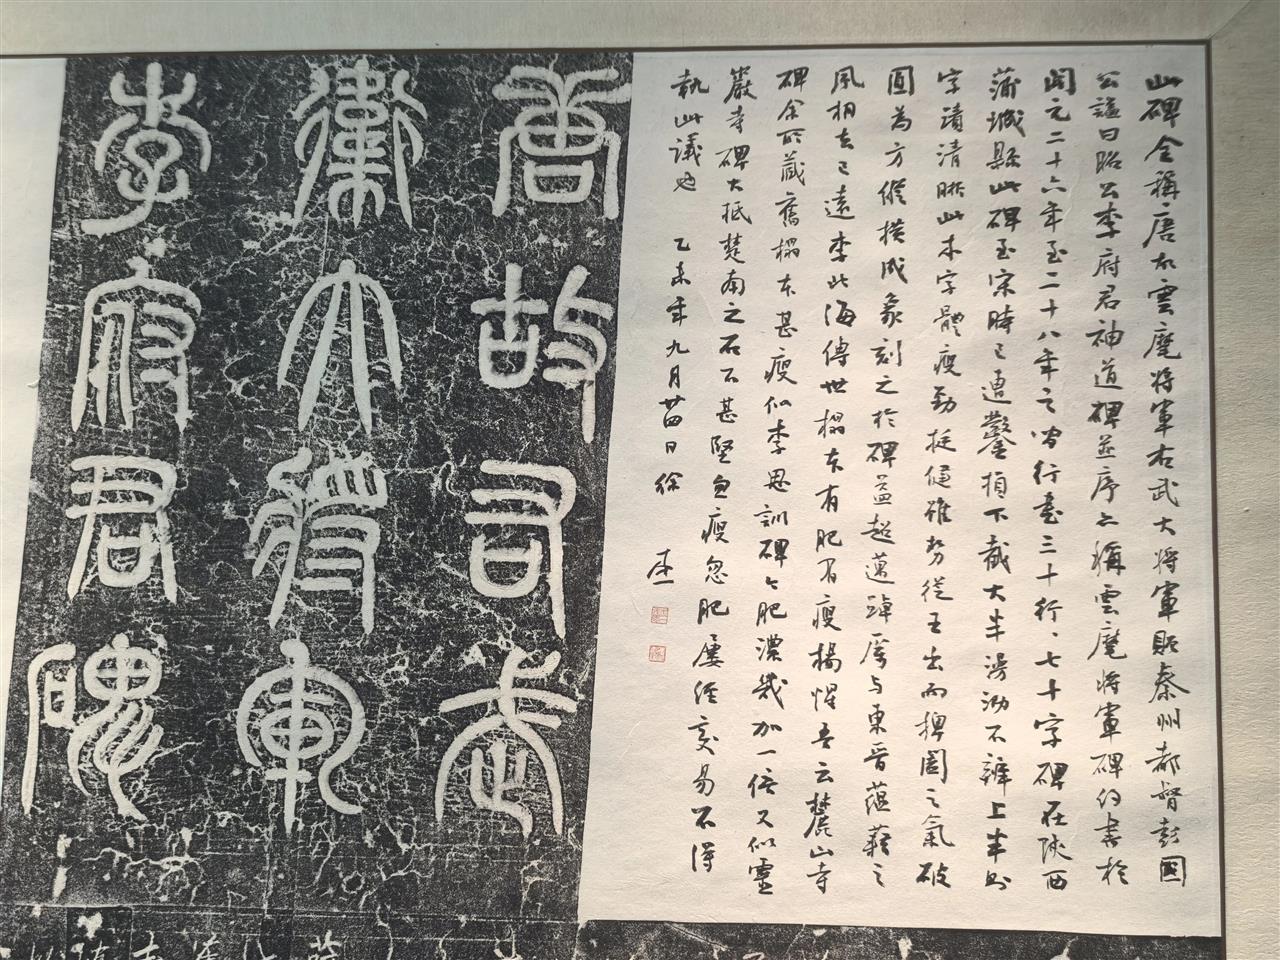 此碑全稱唐右雲麾將軍右武大將軍贈秦州都督彭國
公謚曰昭公李府君神道碑並序亦稱雲麾將軍碑約書於
開元二十六年至二十八年之間行書三十行、七十字碑在陝西
蒲城縣此碑至宋時已遭鑿損下截大半漫泐不辨上半則
字蹟清晰此本字體瘦勁挺健雖努從王出而捭闔之氣破
圓為方縱橫成象刻之於碑益超邁踔厲与東晉蘊藉之
風相去已遠李北海傳世榻本有肥有瘦楊惺吾云麓山寺
碑余所藏舊榻本甚瘦似李思訓碑今肥濃幾加一倍又似靈
巖寺碑大抵楚南之石不甚堅忽瘦忽肥屢經交易不得
執此議也 乙未年九月廿四日徐
唐故右武
衛大將軍
李府君碑